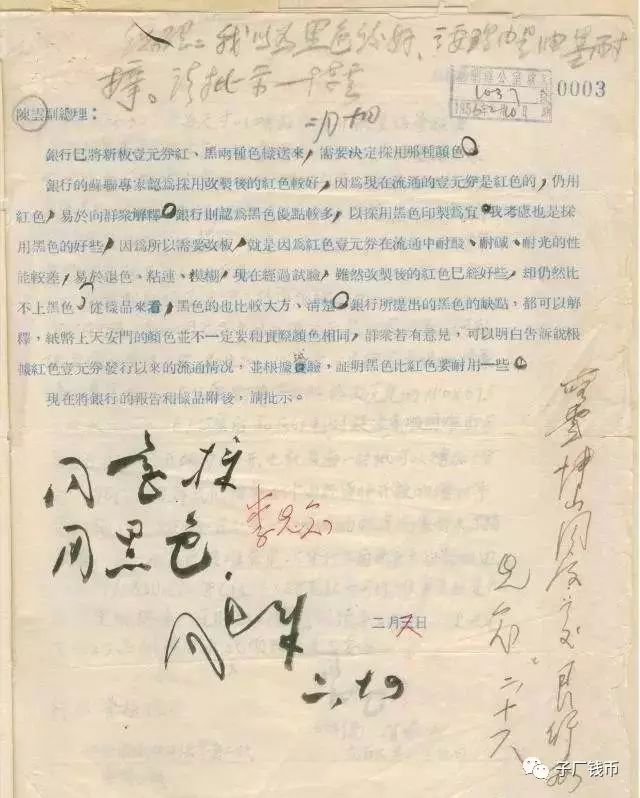 我以为黑色较好，主要理由是油墨耐
擦。请批示 陈云
二月十四
1037
1956年2月10日
0003
陳雲副總理：
銀行已將新板壹元券紅、黑兩種色樣送來，需要決定採用那種顏色。
銀行的蘇聯專家認爲採用改製後的紅色較好，因爲現在流通的壹元券是紅色的，仍用
紅色，易於向群衆解釋。銀行則認爲黑色優點較多，以採用黑色印製爲宜。我考慮也是採
用黑色的好些，因爲所以需要改板，就是因爲紅色壹元券在流通中耐酸、耐碱、耐光的性
能較差，易於退色、粘連、模糊，現在經過試驗，雖然改製後的紅色已經好些，却仍然比
不上黑色，從樣品來看，黑色的也比較大方、清楚。銀行所提出的黑色的缺點，都可以解
釋，紙幣上天安門的顏色並不一定要和實際顏色相同，群衆若有意見，可以明白告訴說根
據紅色壹元券發行以來的流通情况，並根據試驗，証明黑色比紅色要耐用一些。
現在將銀行的報告和樣品附後，請批示。
同意採
用黑色。
李先念
二月六日
周恩来
二、十四
先念
二、十六
子厂钱币